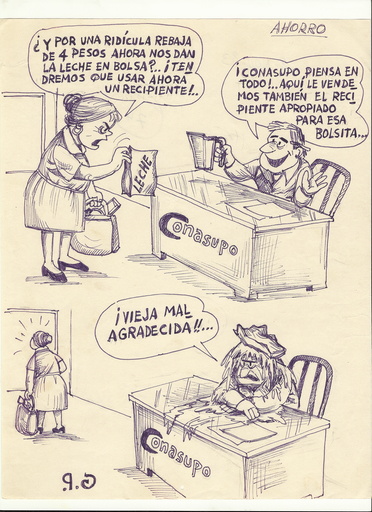 AHORRO
¿Y POR UNA RIDÍCULA REBAJA
DE 4 PESOS AHORA NOS DAN
LA LECHE EN BOLSA?.. ¡TEN
DREMOS QUE USAR AHORA
UN RECIPIENTE!..
¡CONASUPO PIENSA EN
TODO!..AQUÍ LE VENDE
MOS TAMBIÉN EL RECI
PIENTE APROPIADO
PARA ESA
BOLSITA...
LECHE
Conasupo
¡VIEJA MAL
AGRADECIDA!!...
Conasupo